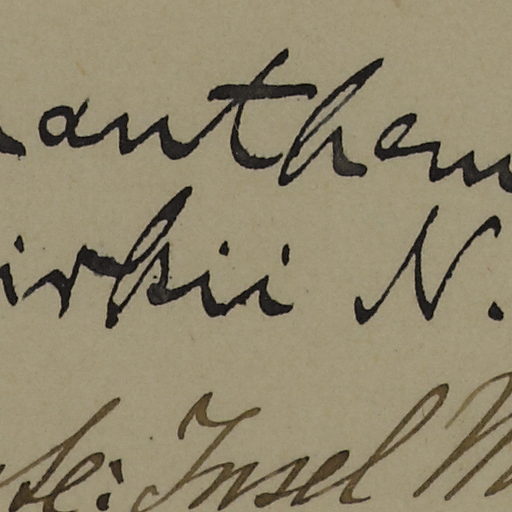 anthem
irkii N.
te: Insel M